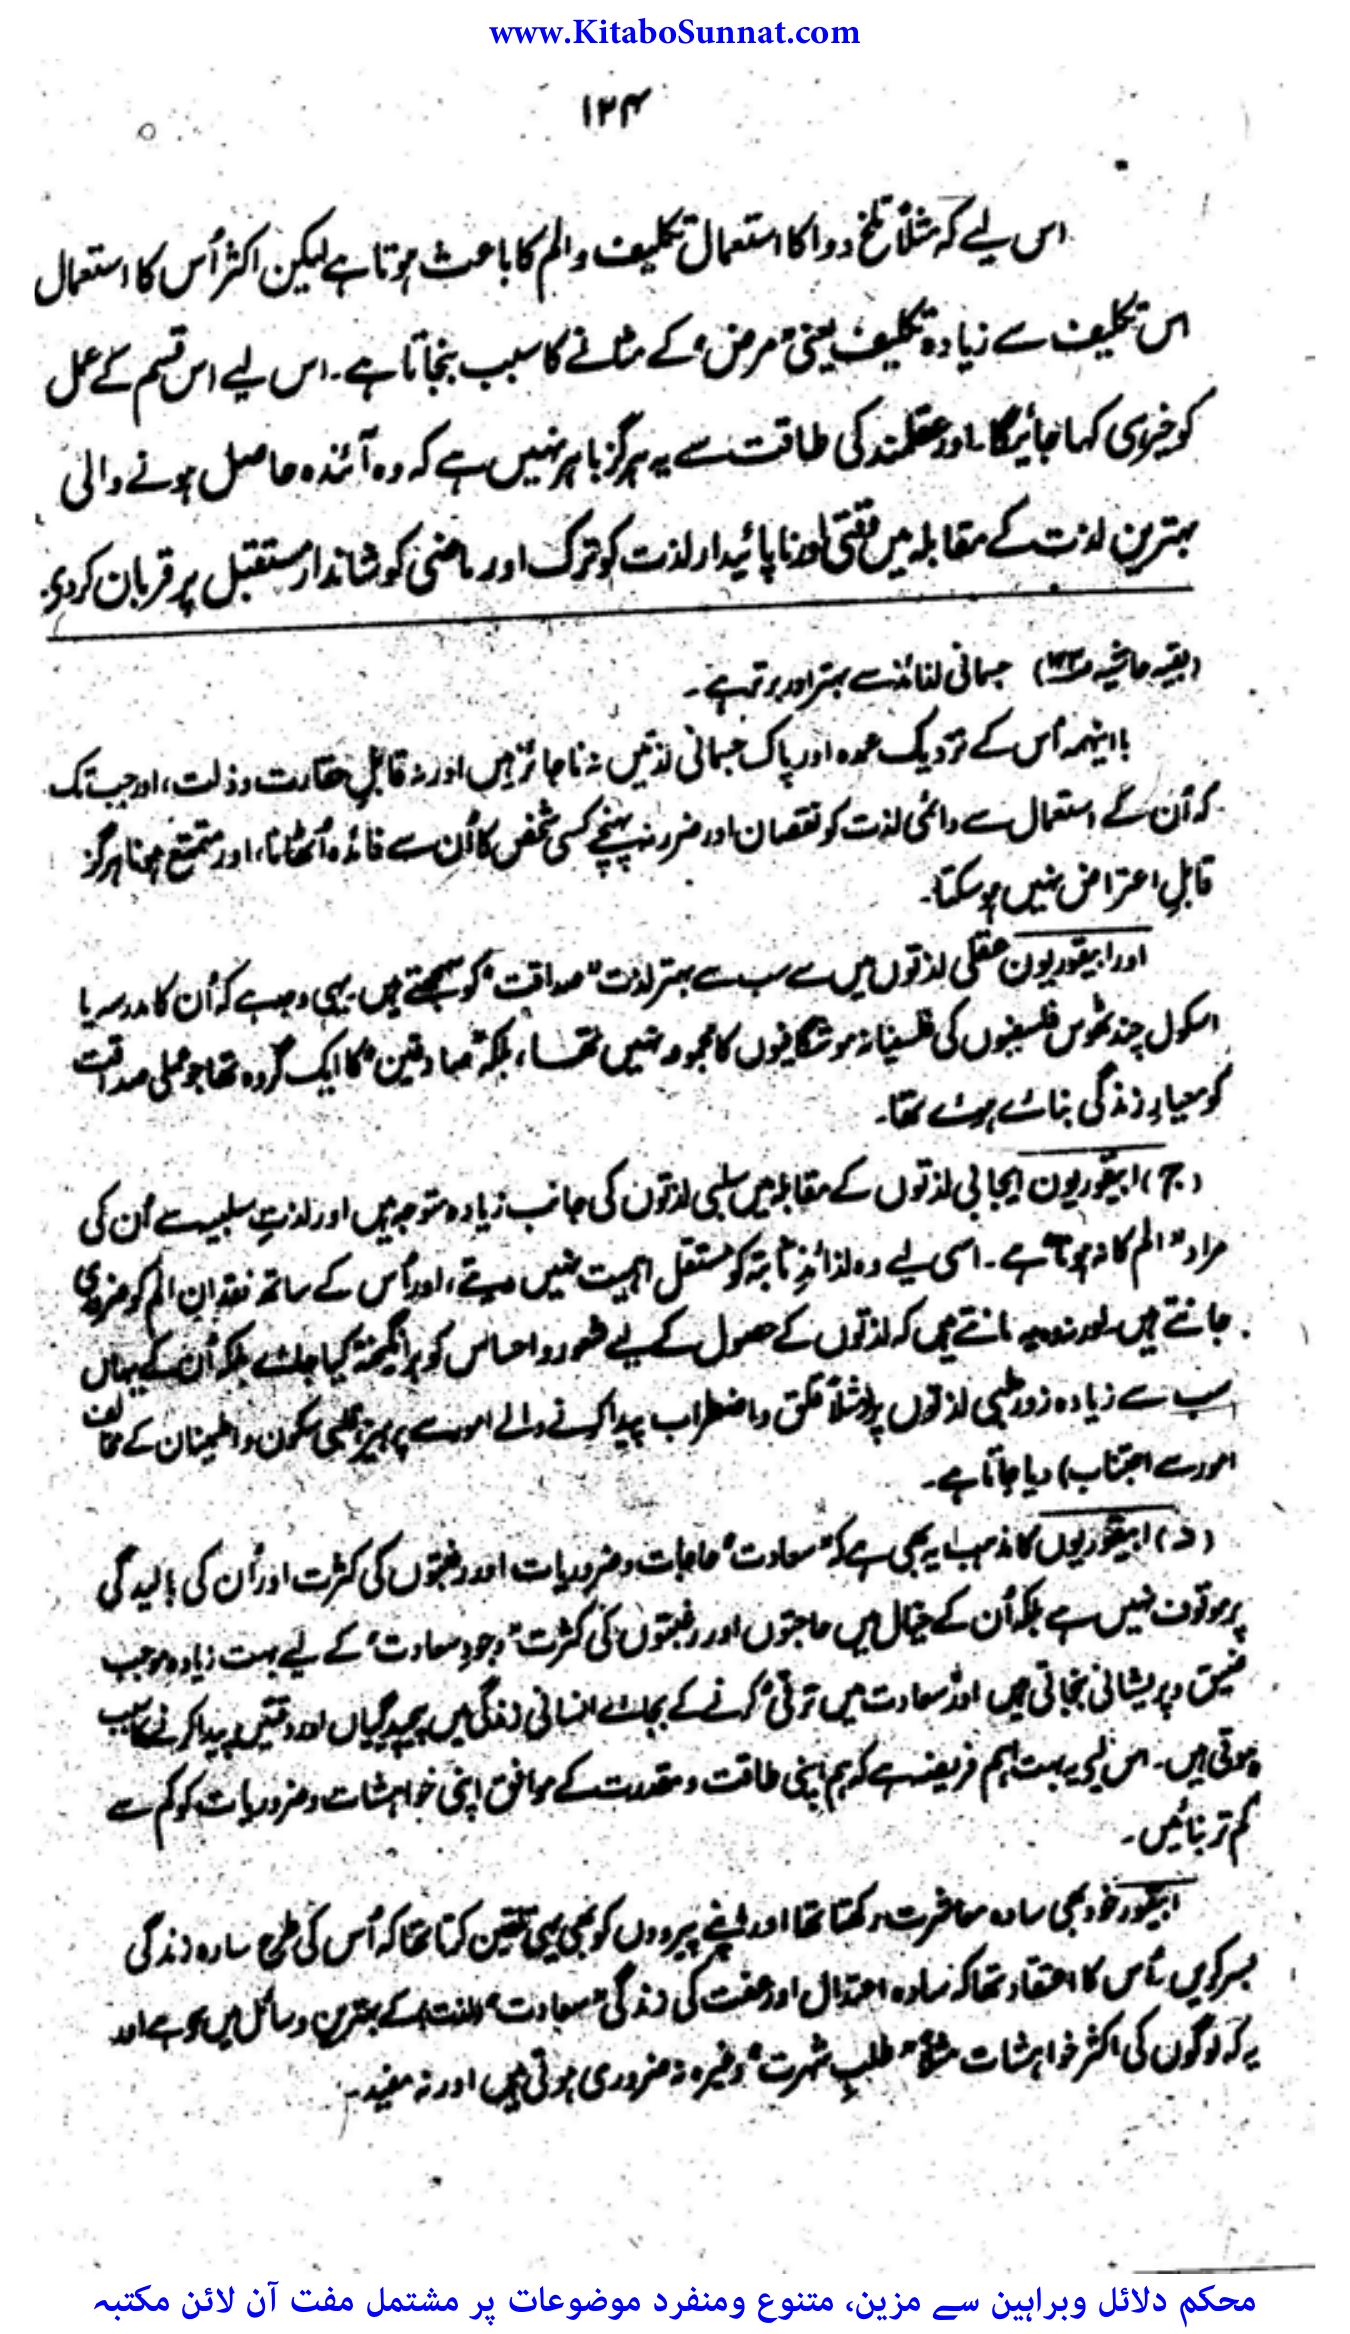 www.KitaboSunnat.com
۱۲۴
اس لیے کہ مثلاً تلخ دوا کا استعمال تکلیف والم کا باعث ہوتا ہے لیکن اکثر اُس کا استعمال
اس تکلیف سے زیادہ تکلیف یعنی "مرض" کے مٹانے کا سبب بنجاتا ہے۔ اس لیے اس قسم کے عمل
کو خیر ہی کہا جائیگا۔ اور عقلمند کی طاقت سے یہ ہرگز باہر نہیں ہے کہ وہ آئندہ حاصل ہونے والی
بہترین لذت کے مقابلہ میں وقتی اور ناپائیدار لذت کو ترک اور ماضی کو شاندار مستقبل پر قربان کردی۔
(بقیہ حاشیہ ص۱۲۳) جسمانی لذائذ سے بہتر اور برتر ہے۔
با اینہمہ اُس کے نزدیک عمدہ اور پاک جسمانی لذتیں نہ ناجائز ہیں اور نہ قابلِ حقارت و ذلت، اور جب تک
کہ اُن کے استعمال سے دائمی لذت کو نقصان اور ضرر نہ پہنچے کسی شخص کا اُن سے فائدہ اُٹھانا، اور متمتع ہونا ہرگز
قابلِ اعتراض نہیں ہوسکتا۔
اور ابیقوریون عقلی لذتوں میں سے سب سے بہتر لذت "صداقت" کو سمجھتے ہیں۔ یہی وجہ ہے کہ اُن کا مدرسہ یا
اسکول چند ٹھوس فلسفیوں کی فلسفیانہ موشگافیوں کا مجموعہ نہیں تھا، بلکہ "صادقین" کا ایک گروہ تھا جو عملی صداقت
کو معیارِ زندگی بنائے ہوئے تھا۔
(ج) ابیقوریون ایجابی لذتوں کے مقابلہ میں سلبی لذتوں کی جانب زیادہ متوجہ ہیں اور لذتِ سلبیہ سے اُن کی
مراد "الم کا نہ ہونا" ہے۔ اسی لیے وہ لذائذِ ثابتہ کو مستقل اہمیت نہیں دیتے، اور اُس کے ساتھ فقدانِ الم کو ضروری
جانتے ہیں۔ اور نہ وہ یہ مانتے ہیں کہ لذتوں کے حصول کے لیے شعور و احساس کو برانگیختہ کیا جائے بلکہ اُن کے یہاں
سب سے زیادہ زور سلبی لذتوں پر (مثلاً قلق و اضطراب پیدا کرنے والے امور سے پرہیز، قلبی سکون و اطمینان کے مخالف
امور سے اجتناب) دیا جاتا ہے۔
(د) ابیقوریوں کا مذہب یہ بھی ہے کہ "سعادت" حاجات و ضروریات اور رغبتوں کی کثرت اور اُن کی بالیدگی
پر موقوف نہیں ہے بلکہ اُن کے خیال میں حاجتوں اور رغبتوں کی کثرت "وجودِ سعادت" کے لیے بہت زیادہ موجب
ضیق و پریشانی بنجاتی ہیں اور "سعادت میں ترقی" کرنے کے بجائے انسانی زندگی میں پیچیدگیاں اور دقتیں پیدا کرنے کا سبب
ہوتی ہیں۔ اس لیے یہ بہت اہم فریضہ ہے کہ ہم اپنی طاقت و مقدرت کے موافق اپنی خواہشات و ضروریات کو کم سے
کم تر بنائیں۔
ابیقور خود بھی سادہ معاشرت رکھتا تھا اور اپنے پیرووں کو بھی یہی تلقین کرتا تھا کہ اُس کی طرح سادہ زندگی
بسر کریں اُس کا اعتقاد تھا کہ سادہ اعتدال اور عفت کی زندگی "سعادت" (لذت) کے بہترین وسائل میں سے ہے اور
یہ کہ لوگوں کی اکثر خواہشات مثلاً "طلبِ شہرت" وغیرہ نہ ضروری ہوتی ہیں اور نہ مفید۔
محکم دلائل وبراہین سے مزین، متنوع ومنفرد موضوعات پر مشتمل مفت آن لائن مکتبہ